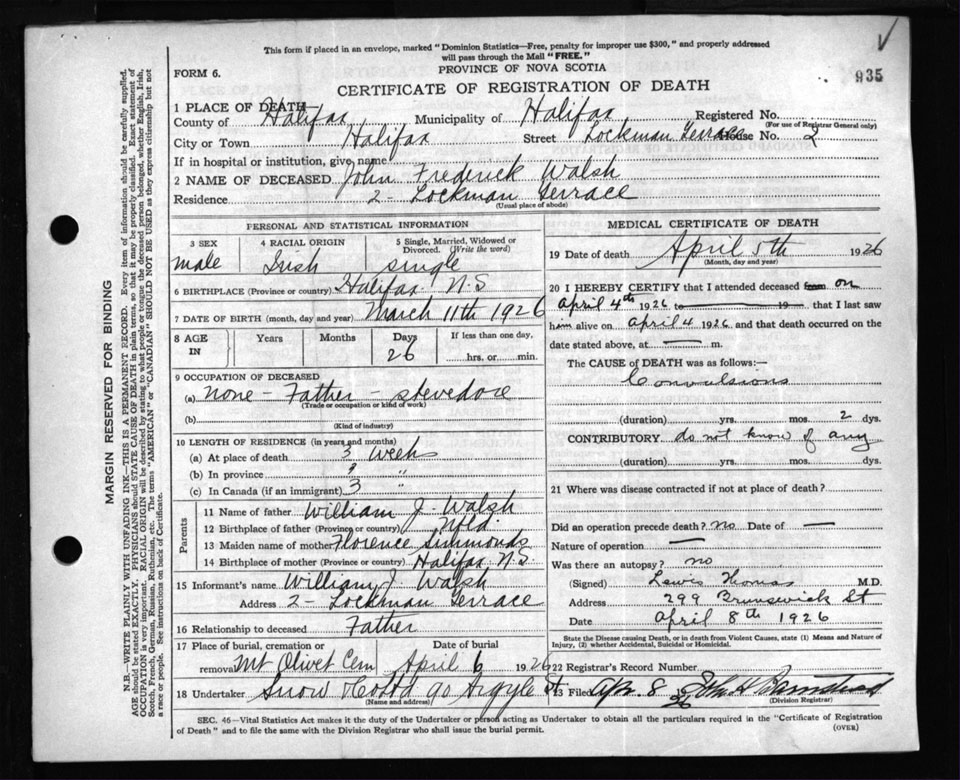 This form if placed in an envelope, marked "Dominion Statistics—Free, penalty for improper use $300," and properly addressed
will pass through the Mail "FREE."
935
PROVINCE OF NOVA SCOTIA
FORM 6.
CERTIFICATE OF REGISTRATION OF DEATH
1 PLACE OF DEATH—
County of Halifax Municipality of Halifax Registered No.
(For use of Registrar General only)
City or Town Halifax Street Lockman Terrace House No. 2
If in hospital or institution, give name
2 NAME OF DECEASED John Frederick Walsh
Residence 2 - Lockman Terrace
(Usual place of abode)
PERSONAL AND STATISTICAL INFORMATION
3 SEX 4 RACIAL ORIGIN 5 Single, Married, Widowed or
Divorced. (Write the word)
male Irish single
6 BIRTHPLACE (Province or country) Halifax N.S
7 DATE OF BIRTH (month, day and year) March 11th 1926
8 AGE IN Years Months Days If less than one day,
26 hrs. or min.
9 OCCUPATION OF DECEASED
(a) none - Father - stevedore
(Trade or occupation or kind of work)
(b)
(Kind of industry)
10 LENGTH OF RESIDENCE (in years and months)
(a) At place of death 3 Weeks
(b) In province 3 "
(c) In Canada (if an immigrant) 3 "
Parents
11 Name of father William J. Walsh
12 Birthplace of father (Province or country) Nfld.
13 Maiden name of mother Florence Simmonds
14 Birthplace of mother (Province or country) Halifax, N.S
15 Informant's name William J Walsh
Address 2 - Lockman Terrace
16 Relationship to deceased Father
17 Place of burial, cremation or Date of burial
removal Mt Olivet Cem April 6 1926
18 Undertaker Snow & Co Ltd 90 Argyle St
(Name and address)
MEDICAL CERTIFICATE OF DEATH
19 Date of death April 5th 1926
(Month, day and year)
20 I HEREBY CERTIFY that I attended deceased from on
April 4th 1926 to 19 that I last saw
him alive on April 4 1926 and that death occurred on the
date stated above, at — m.
The CAUSE OF DEATH was as follows:
Convulsions
(duration) yrs. mos. 2 dys.
CONTRIBUTORY do not know of any
(duration) yrs. mos. dys.
21 Where was disease contracted if not at place of death?
Did an operation precede death? no Date of —
Nature of operation —
Was there an autopsy? no
(Signed) Lewis Thomas M.D.
Address 299 Brunswick St
Date April 8th 1926
State the Disease causing Death, or in death from Violent Causes, state (1) Means and Nature of
Injury, (2) whether Accidental, Suicidal or Homicidal.
22 Registrar's Record Number
23 Filed Apr. 8 26
(Division Registrar)
SEC. 46—Vital Statistics Act makes it the duty of the Undertaker or person acting as Undertaker to obtain all the particulars required in the "Certificate of Registration
of Death" and to file the same with the Division Registrar who shall issue the burial permit.
(OVER)
MARGIN RESERVED FOR BINDING
N.B.—WRITE PLAINLY WITH UNFADING INK—THIS IS A PERMANENT RECORD. Every item of information should be carefully supplied.
AGE should be stated EXACTLY. PHYSICIANS should STATE CAUSE OF DEATH in plain terms, so that it may be properly classified. Exact statement of
OCCUPATION is very important. RACIAL ORIGIN will be described by stating to what people or tongue the deceased person belonged, whether English, Irish,
Scotch, French, German, Russian, Ruthenian, etc. The terms "AMERICAN" or "CANADIAN" SHOULD NOT BE USED as they express citizenship but not
a race or people. See instructions on back of Certificate.